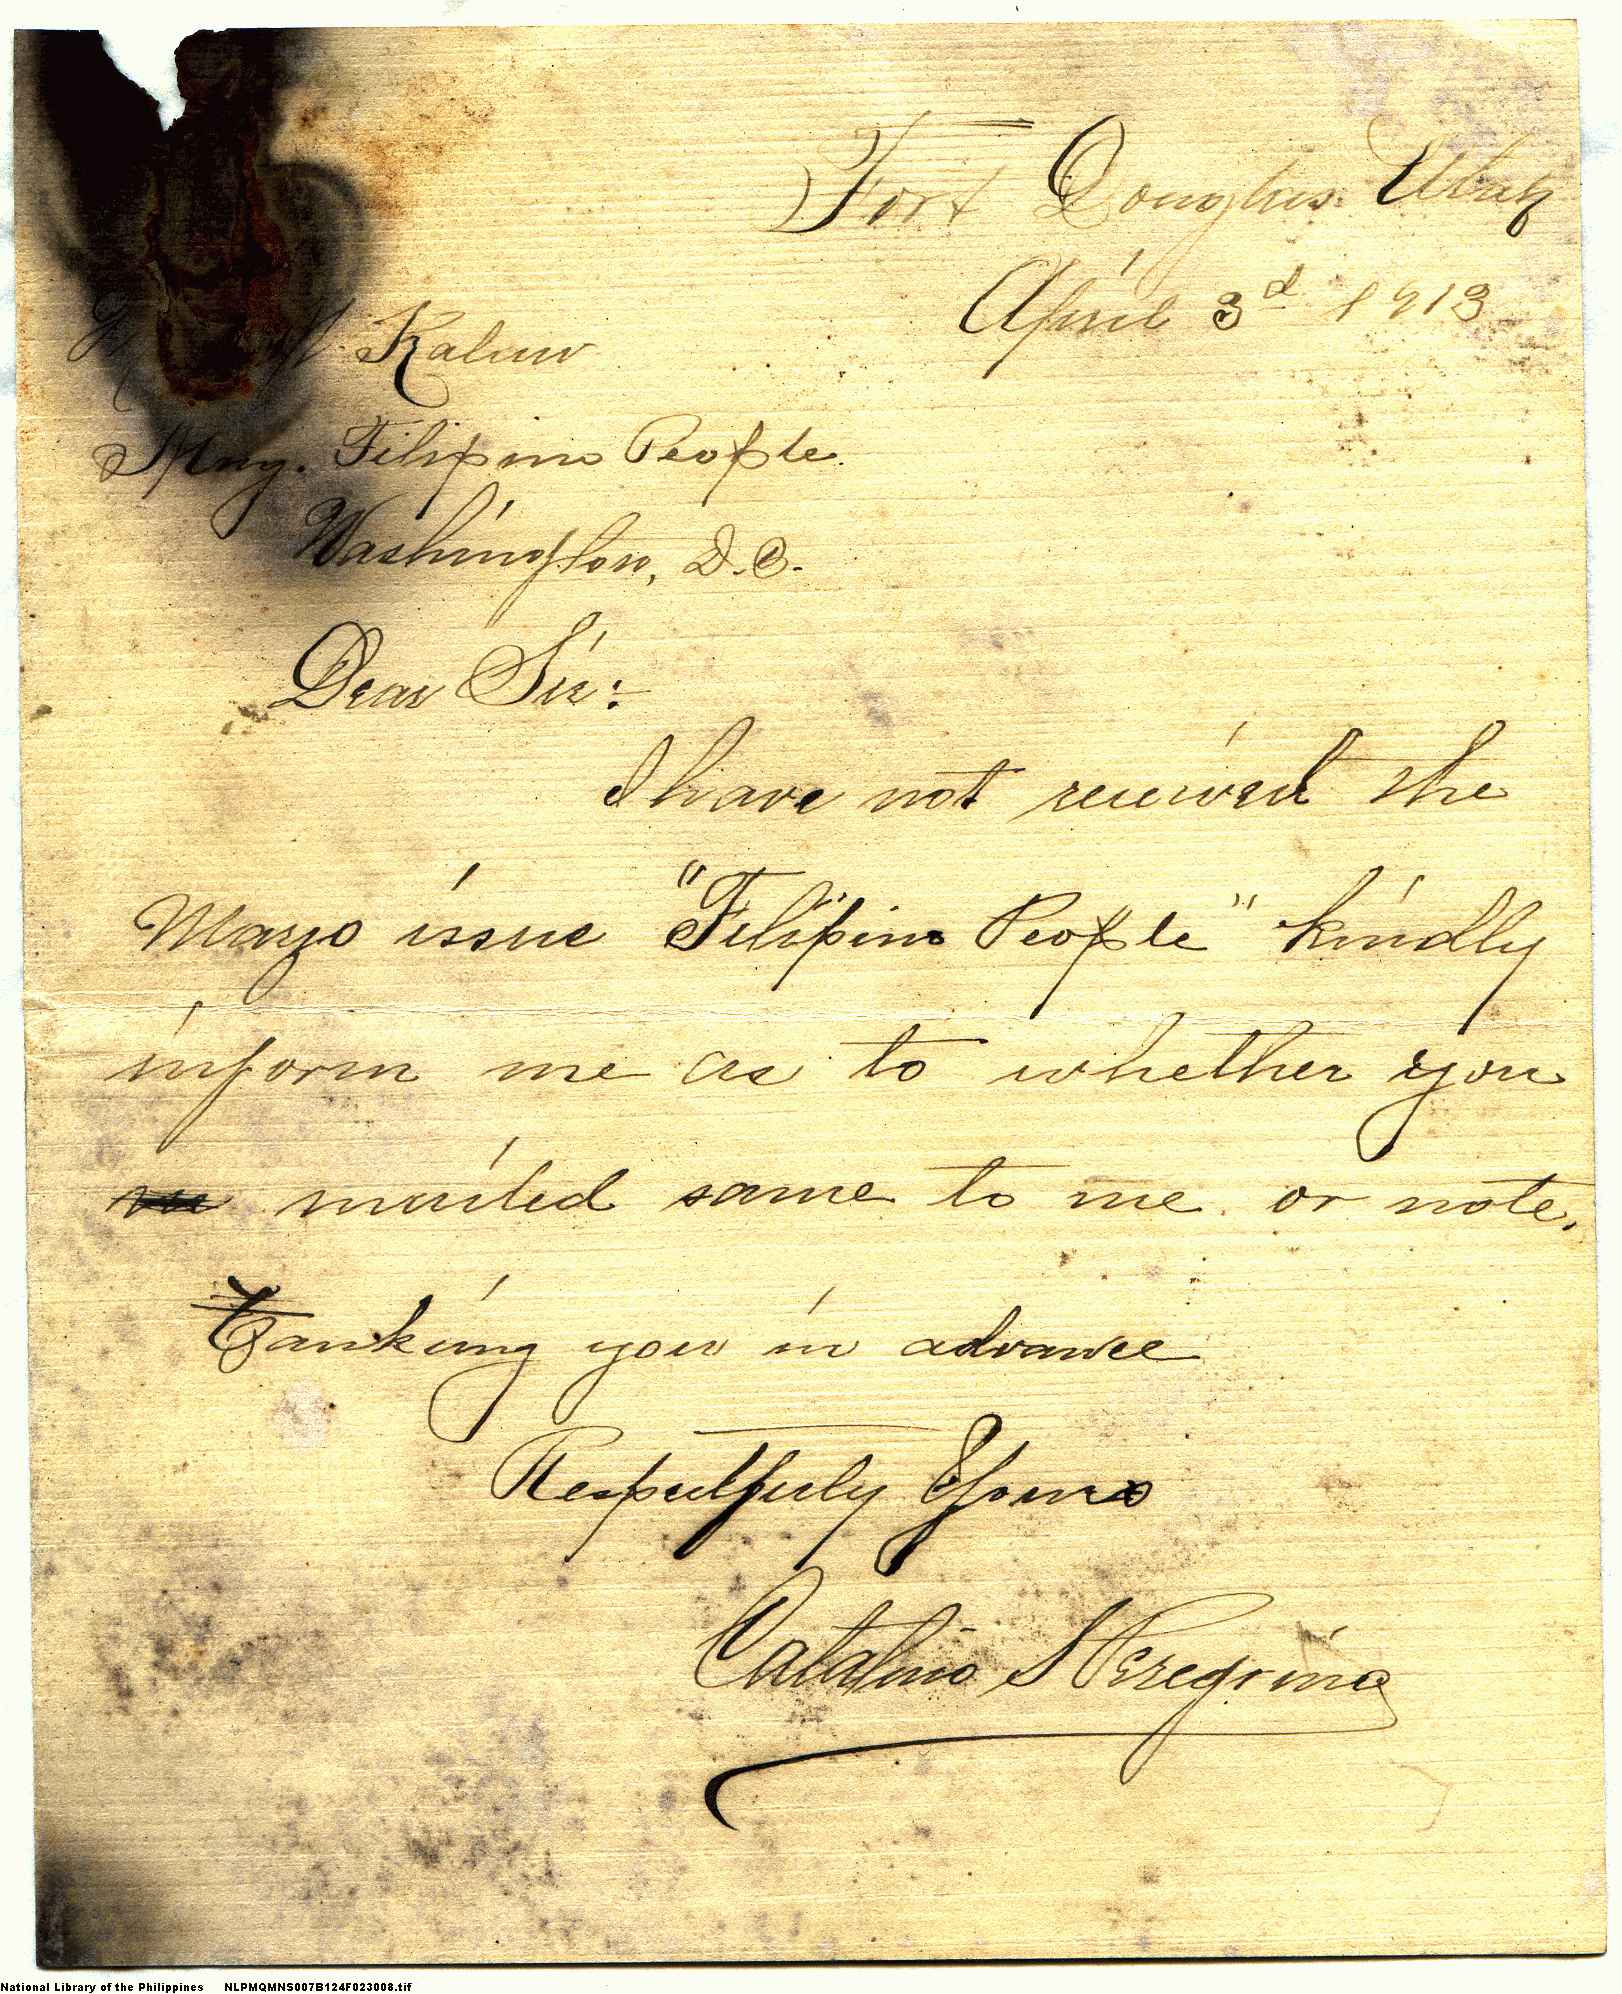 Fort Douglas Utah
April 3d 1913
M. Kalaw
Mng. Filipino People.
Washington, D.C.
Dear Sir:
I have not received the
Mayo issue "Filipino People" kindly
inform me as to whether you
mailed same to me or note.
Tanking you in advance
Respectfuly Yours
Catalino S Peregrino
National Library of the Philippines NLPMQMNS007B124F023008.tif